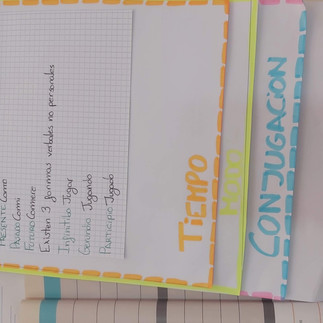 PRESENTE Come
PASADO Comi
FUTURO Comiere
Existen 3 formas verbales no personales
Infinitivo Jugar
Gerundio Jugando
Participio Jugado
TiEMPO
MODO
CONJUGACION